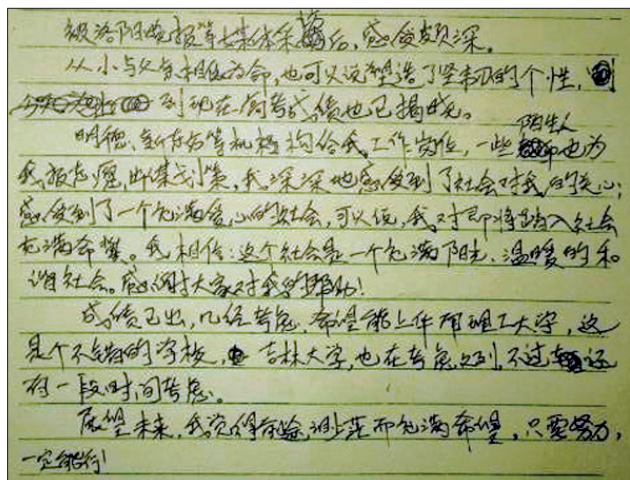 被洛阳晚报等媒体采访后，感受颇深。
从小与父母相依为命，也可以说塑造了坚韧的个性，
到现在高考成绩也已揭晓。
明德、新东方等机构给我工作岗位，一些陌生人也为
我报志愿，出谋划策，我深深地感受到了社会对我的关心；
感受到了一个充满爱心的社会，可以说，我对即将踏入社会
充满希冀。我相信：这个社会是一个充满阳光、温暖的和
谐社会。感谢大家对我的帮助！
成绩已出，几经考虑，希望能上华南理工大学，这
是个不错的学校，吉林大学，也在考虑之列，不过还
有一段时间考虑。
展望未来，我觉得前途渺茫而充满希望，只要努力，
一定能行！